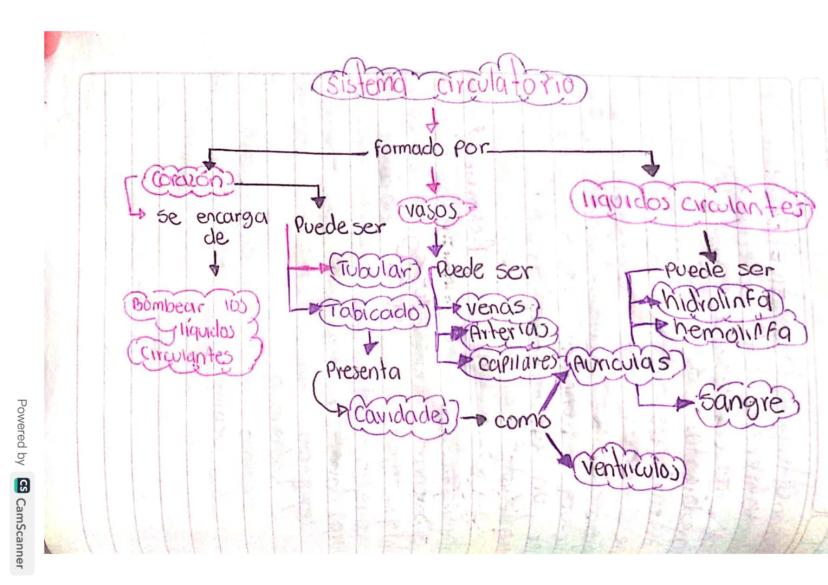 sistema circulatorio
formado por
corazón
se encarga
de
Bombear los
líquidos
Circulantes
Puede ser
Tubular
Tabicado
Presenta
Cavidades
como
Aurículas
ventriculos
vasos
Puede ser
venas
Arterias
capilares
líquidos circulantes
Puede ser
hidrolinfa
hemolinfa
sangre
Powered by CS CamScanner